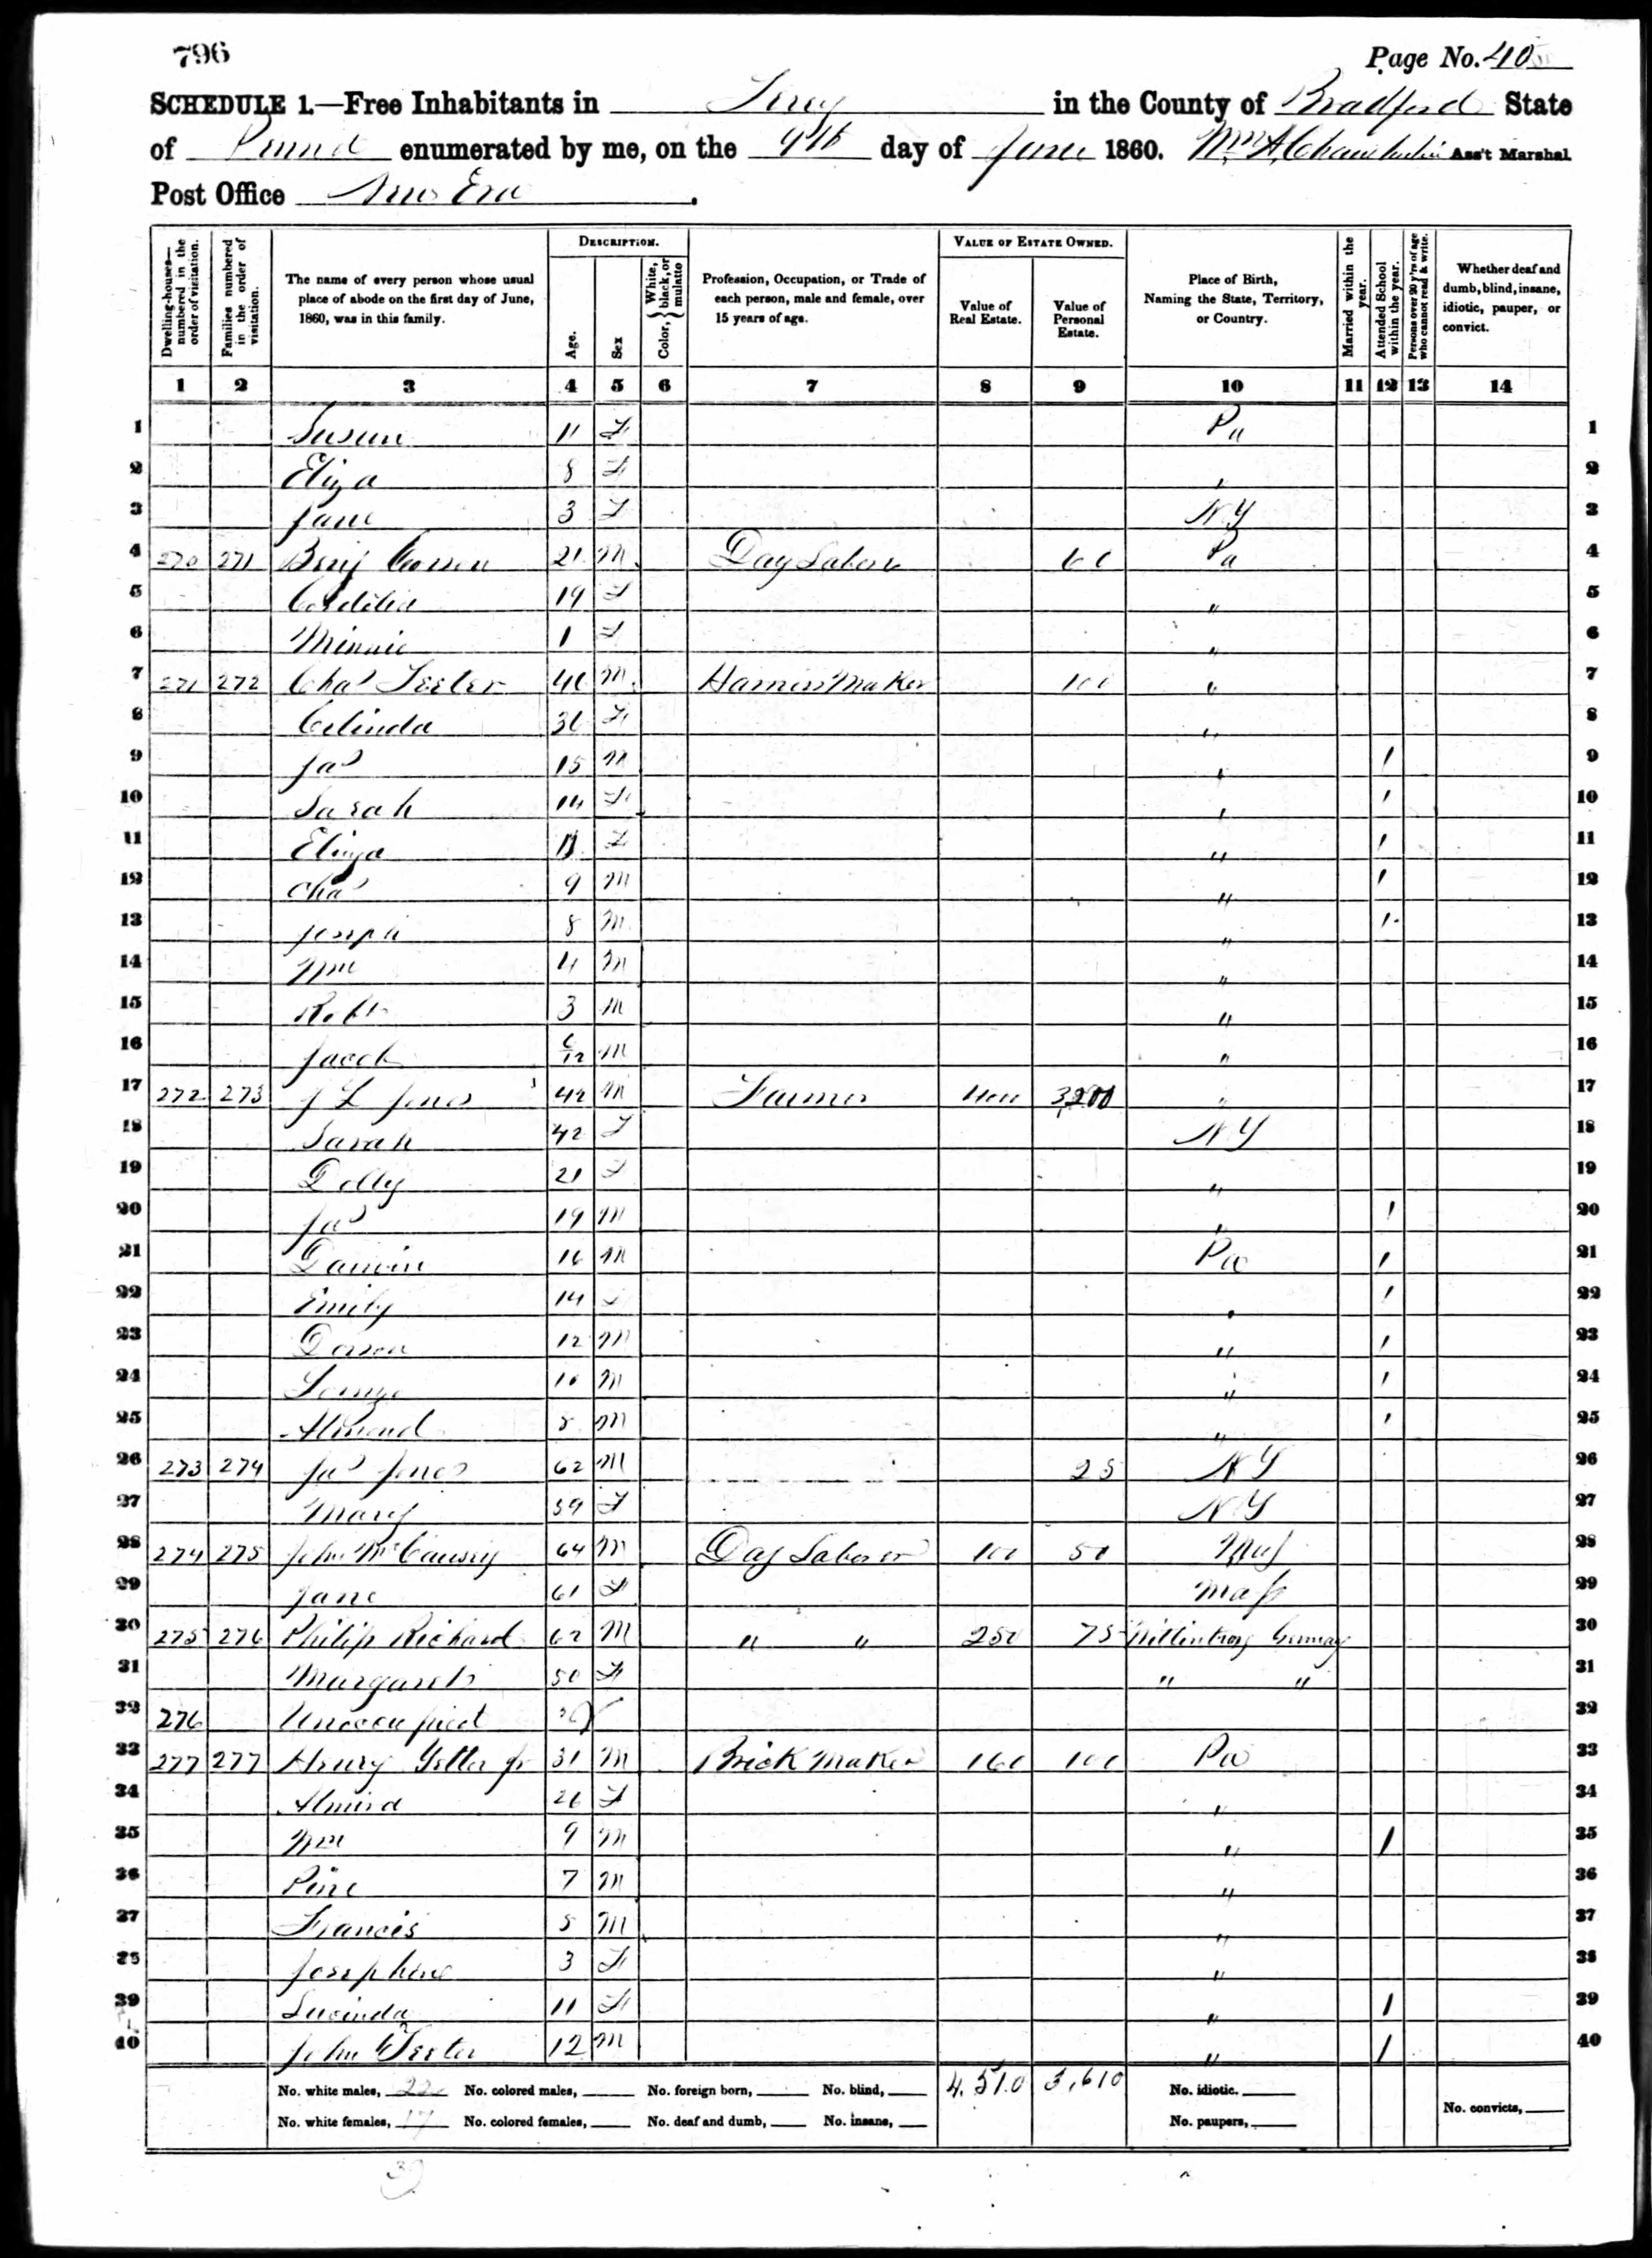 796
Page No. 40
SCHEDULE 1.—Free Inhabitants in Terry in the County of Bradford State
of Penna enumerated by me, on the 9th day of June 1860. Wm A Chamberlin Ass't Marshal
Post Office New Era
Dwelling-houses—numbered in the order of visitation.
Families numbered in the order of visitation.
The name of every person whose usual place of abode on the first day of June, 1860, was in this family.
DESCRIPTION.
Age.
Sex
Color, { White, black, or mulatto
Profession, Occupation, or Trade of each person, male and female, over 15 years of age.
VALUE OF ESTATE OWNED.
Value of Real Estate.
Value of Personal Estate.
Place of Birth, Naming the State, Territory, or Country.
Married within the year.
Attended School within the year.
Persons over 20 y'rs of age who cannot read & write.
Whether deaf and dumb, blind, insane, idiotic, pauper, or convict.
1 2 3 4 5 6 7 8 9 10 11 12 13 14
1 Susan 11 F Pa 1
2 Eliza 8 F " 2
3 Jane 3 F N Y 3
4 270 271 Benj 21 M Day Labore 60 Pa 4
5 Cordelia 19 F " 5
6 Minnie 1 F " 6
7 271 272 Chas Teeter 40 M Harness Maker 100 " 7
8 Celinda 36 F " 8
9 Jas 15 M " 1 9
10 Sarah 14 F " 1 10
11 Eliza 11 F " 1 11
12 Chas 9 M " 1 12
13 Joseph 8 M " 1 13
14 Wm 4 M " 14
15 Robt 3 M " 15
16 Jacob 6/12 M " 16
17 272 273 J L Jones 42 M Farmer 4000 3200 " 17
18 Sarah 42 F N Y 18
19 Dolly 21 F " 19
20 Jas 19 M " 1 20
21 Darwin 16 M Pa 1 21
22 Emily 14 F " 1 22
23 12 M " 1 23
24 10 M " 1 24
25 Almond 8 M " 1 25
26 273 274 Jas Jones 62 M 25 N Y 26
27 Mary 59 F N Y 27
28 274 275 John 64 M Day Laborer 100 50 Mass 28
29 Jane 61 F Mass 29
30 275 276 Philip Richard 62 M " " 250 75 Wittenburg Germay 30
31 Margaret 50 F " " 31
32 276 Unoccupied 32
33 277 277 Henry Jr 31 M Brick Maker 160 100 Pa 33
34 Almira 26 F " 34
35 Wm 9 M " 1 35
36 7 M " 36
37 Francis 5 M " 37
38 Josephine 3 F " 38
39 Lucinda 11 F " 1 39
40 John Teeter 12 M " 1 40
No. white males, 22 No. colored males, No. foreign born, No. blind, 4,510 3,610 No. idiotic.
No. white females, 17 No. colored females, No. deaf and dumb, No. insane, No. paupers, No. convicts,
39